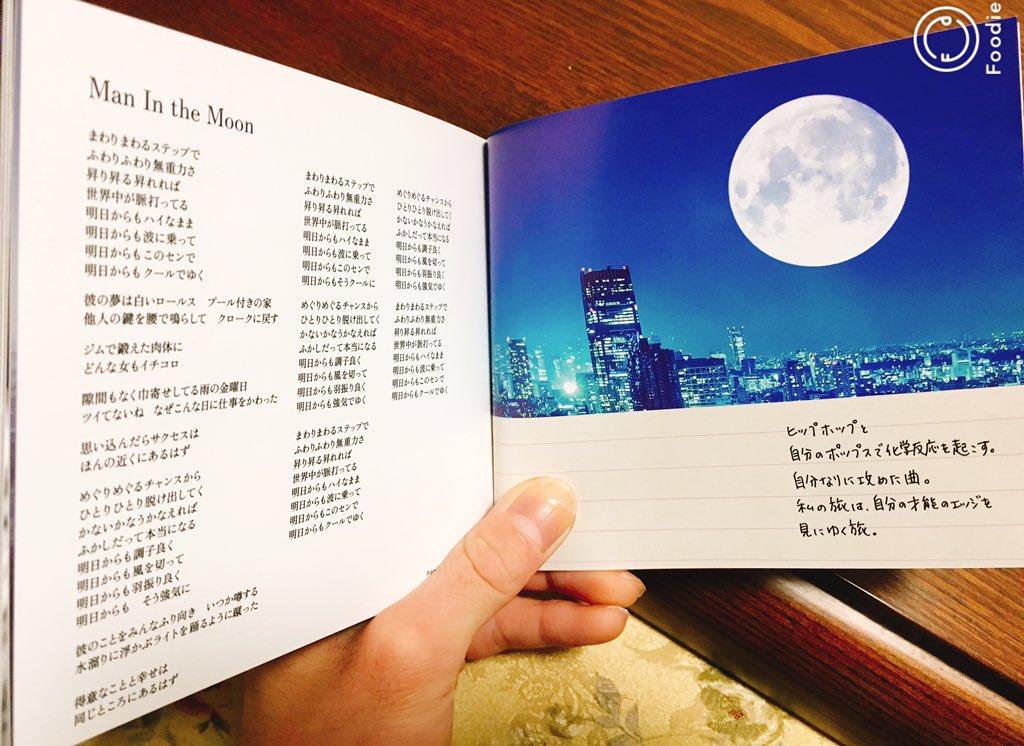 Man In the Moon
まわりまわるステップで
ふわりふわり無重力さ
昇り昇る昇れれば
世界中が脈打ってる
明日からもハイなまま
明日からも波に乗って
明日からもこのセンで
明日からもクールでゆく
彼の夢は白いロールス　プール付きの家
他人の鍵を腰で鳴らして　クロークに戻す
ジムで鍛えた肉体に
どんな女もイチコロ
隙間もなく巾寄せしてる雨の金曜日
ツイてないね　なぜこんな日に仕事をかわった
思い込んだらサクセスは
ほんの近くにあるはず
めぐりめぐるチャンスから
ひとりひとり脱け出してく
かないかなうかなえれば
ふかしだって本当になる
明日からも調子良く
明日からも風を切って
明日からも羽振り良く
明日からも　そう強気に
彼のことをみんなふり向き　いつか噂する
水溜りに浮かぶライトを踊るように蹴った
得意なことと幸せは
同じところにあるはず
まわりまわるステップで
ふわりふわり無重力さ
昇り昇る昇れれば
世界中が脈打ってる
明日からもハイなまま
明日からも波に乗って
明日からもこのセンで
明日からもそうクールに
めぐりめぐるチャンスから
ひとりひとり脱け出してく
かないかなうかなえれば
ふかしだって本当になる
明日からも調子良く
明日からも風を切って
明日からも羽振り良く
明日からも強気でゆく
まわりまわるステップで
ふわりふわり無重力さ
昇り昇る昇れれば
世界中が脈打ってる
明日からもハイなまま
明日からも波に乗って
明日からもこのセンで
明日からもクールでゆく
めぐりめぐるチャンスから
ひとりひとり脱け出してく
かないかなうかなえれば
ふかしだって本当になる
明日からも調子良く
明日からも風を切って
明日からも羽振り良く
明日からも強気でゆく
まわりまわるステップで
ふわりふわり無重力さ
昇り昇る昇れれば
世界中が脈打ってる
明日からもハイなまま
明日からも波に乗って
明日からもこのセンで
明日からもクールでゆく
ヒップホップと
自分のポップスで化学反応を起こす。
自分なりに攻めた曲。
私の旅は、自分の才能のエッジを
見にゆく旅。
Foodie